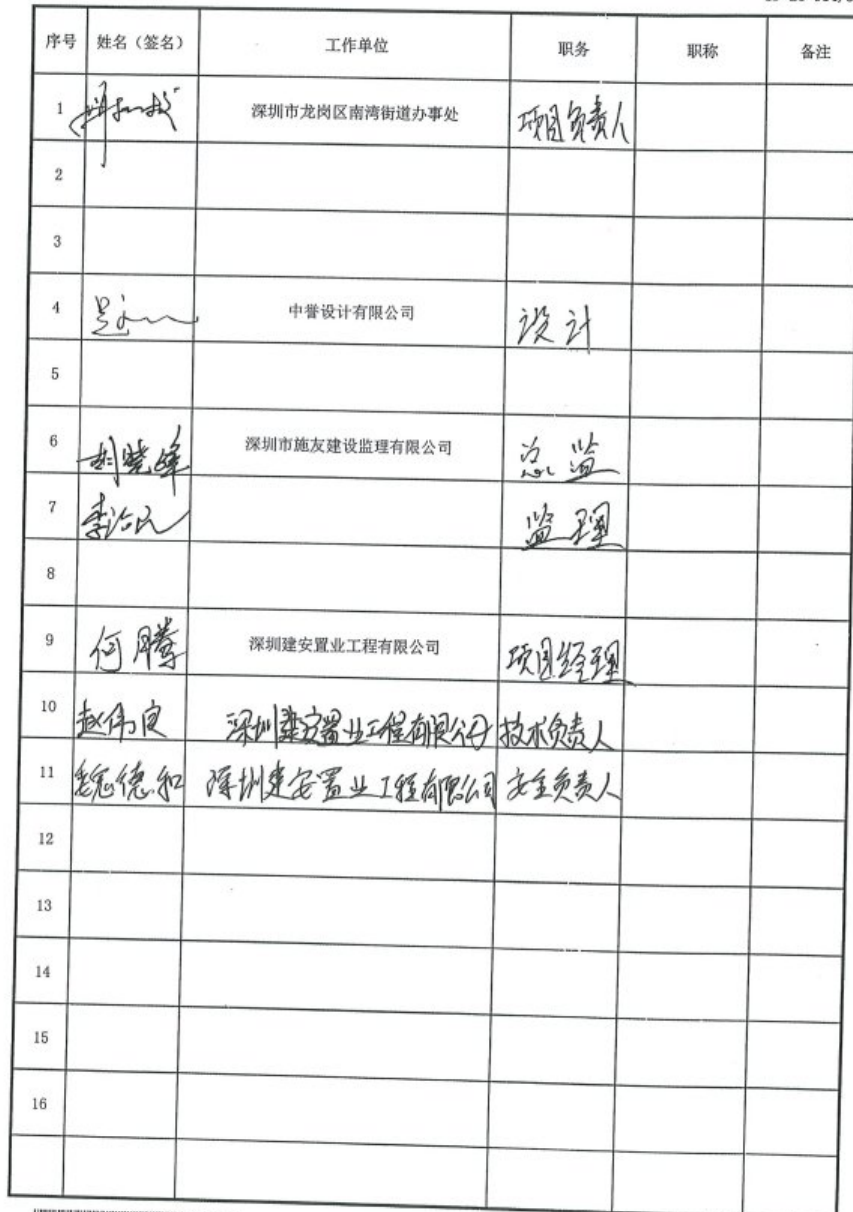 序号 姓名（签名） 工作单位 职务 职称 备注
1 深圳市龙岗区南湾街道办事处 项目负责人
2
3
4 中誉设计有限公司 设计
5
6 胡晓峰 深圳市施友建设监理有限公司 总监
7 李治民 监理
8
9 何腾 深圳建安置业工程有限公司 项目经理
10 赵伟良 深圳建安置业工程有限公司 技术负责人
11 魏德和 深圳建安置业工程有限公司 安全负责人
12
13
14
15
16